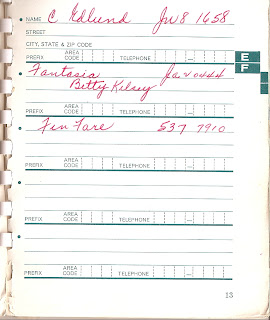 NAME C Edlund JW8 1658
STREET
CITY, STATE & ZIP CODE
PREFIX AREA CODE TELEPHONE –
E
F
Fantasia
Betty Kilsey
PREFIX AREA CODE TELEPHONE –
Fin Fare 537 7910
PREFIX AREA CODE TELEPHONE –
PREFIX AREA CODE TELEPHONE –
PREFIX AREA CODE TELEPHONE –
13